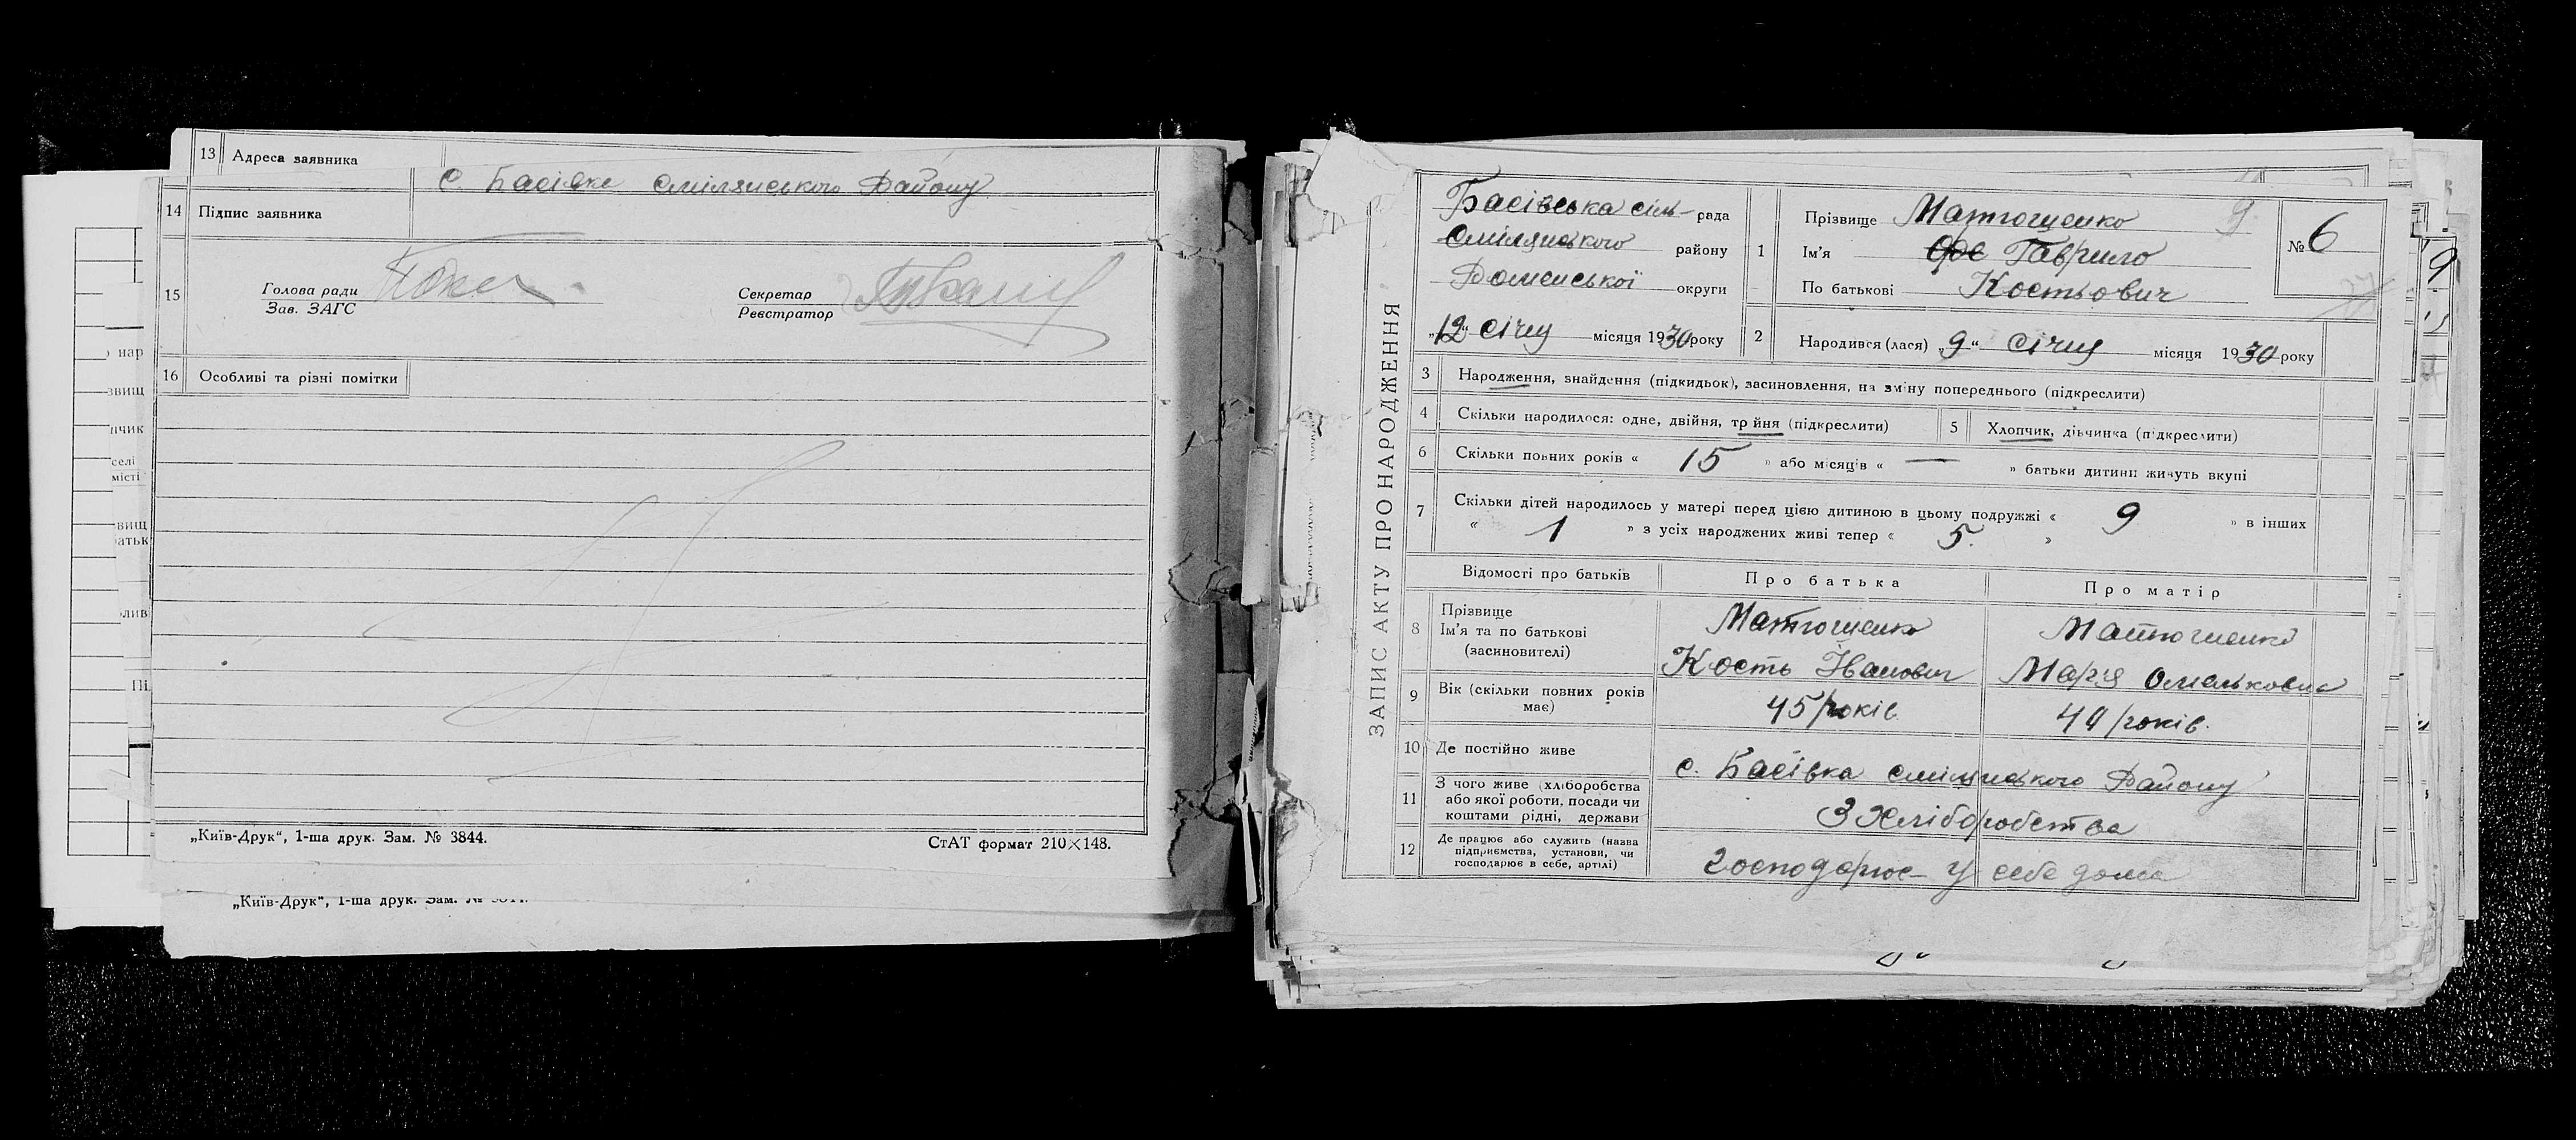 13 Адреса заявника
с. Басівка Смілянського Району
14 Підпис заявника
15 Голова ради
Зав. ЗАГС
Секретар
Реєстратор
16 Особливі та різні помітки
„Київ-Друк“, 1-ша друк. Зам. № 3844.
СтАТ формат 210×148.
„Київ-Друк“, 1-ша друк. Зам. №
нар
звищ
пчик
селі
місті
звищ
батьк
ЗАПИС АКТУ ПРО НАРОДЖЕННЯ
Басівська сіль- рада
Смілянського району
Роменської округи
„12“ січня місяця 1930 року
1 Прізвище Матюшенко
Ім'я Гаврило
По батькові Костьович
№ 6
9
2 Народився (лася) „9“ січня місяця 1930 року
3 Народження, знайдення (підкидьок), засиновлення, на зміну попереднього (підкреслити)
4 Скільки народилося: одне, двійня, тр йня (підкреслити)
5 Хлопчик, дівчинка (підкреслити)
6 Скільки повних років « 15 » або місяців « — » батьки дитини живуть вкупі
7 Скільки дітей народилось у матері перед цією дитиною в цьому подружжі « 9 » в інших
« 1 » з усіх народжених живі тепер « 5. »
Відомості про батьків
Про батька
Про матір
8 Прізвище
Ім'я та по батькові
(засиновителі)
Матюшенко
Кость Іванович
Матюшенко
Марія Омельковна
9 Вік (скільки повних років
має)
45 років.
40 років.
10 Де постійно живе
с. Басівка Смілянського Району
11 З чого живе (хліборобства
або якої роботи, посади чи
коштами рідні, держави
З Хліборобства
12 Де працює або служить (назва
підприємства, установи, чи
господарює в себе, артілі)
Господарює у себе дома